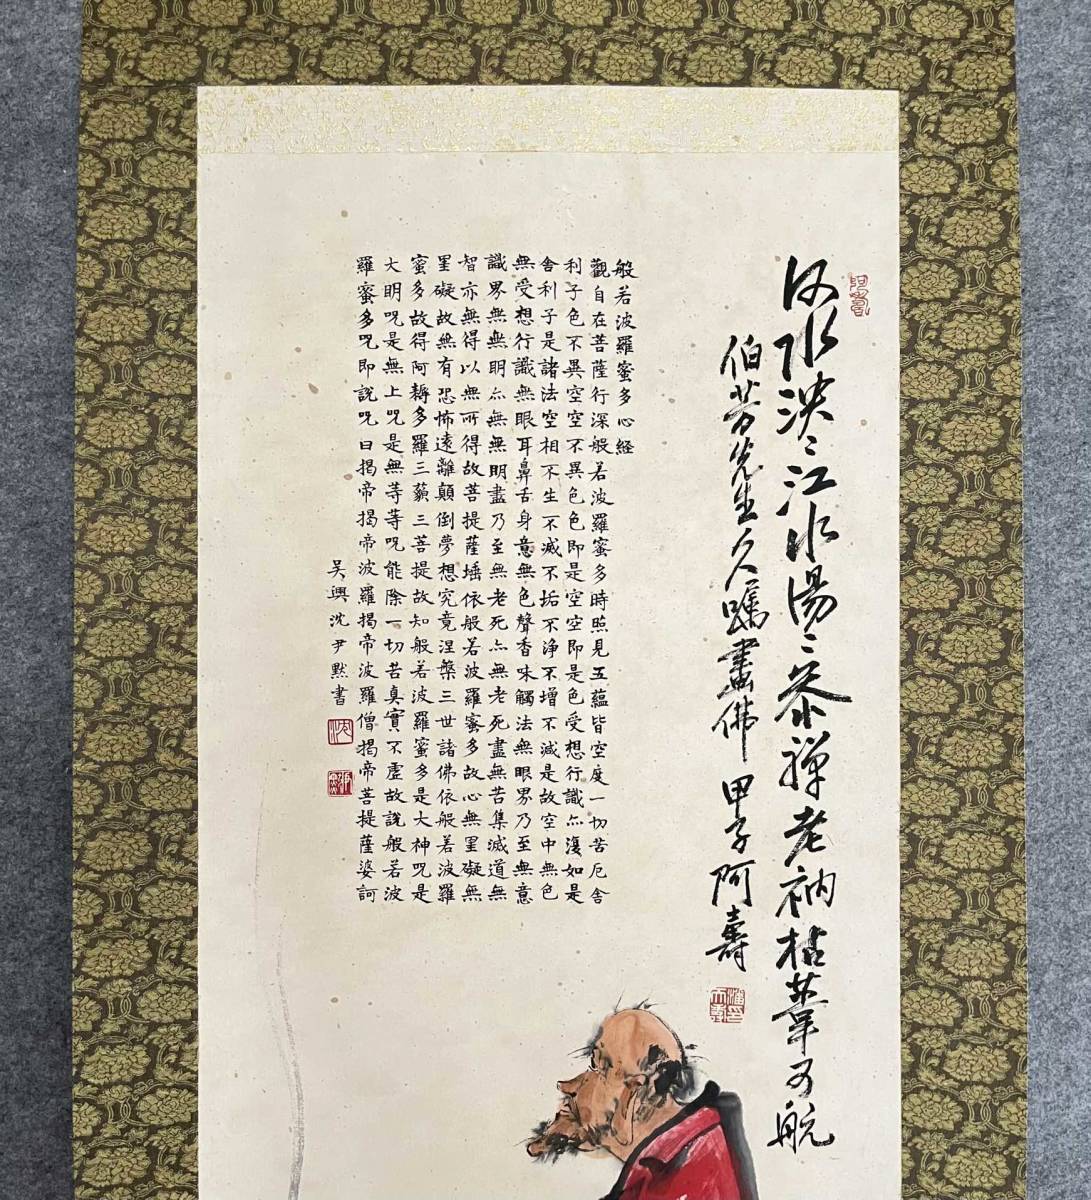 阿壽
河水泱〻江水湯〻參禪老衲枯葦可航
伯芳先生久嘱畫佛 甲子阿壽
般若波羅蜜多心経
觀自在菩薩行深般若波羅蜜多時照見五蘊皆空度一切苦厄舍
利子色不異空空不異色色即是空空即是色受想行識亦復如是
舍利子是諸法空相不生不滅不垢不淨不增不減是故空中無色
無受想行識無眼耳鼻舌身意無色聲香味觸法無眼界乃至無意
識界無無明亦無無明盡乃至無老死亦無老死盡無苦集滅道無
智亦無得以無所得故菩提薩埵依般若波羅蜜多故心無罣礙無
罣礙故無有恐怖遠離顛倒夢想究竟涅槃三世諸佛依般若波羅
蜜多故得阿耨多羅三藐三菩提故知般若波羅蜜多是大神咒是
大明咒是無上咒是無等等咒能除一切苦真實不虛故說般若波
羅蜜多咒即說咒曰揭帝揭帝波羅揭帝波羅僧揭帝菩提薩婆訶
吴興沈尹默書
沈